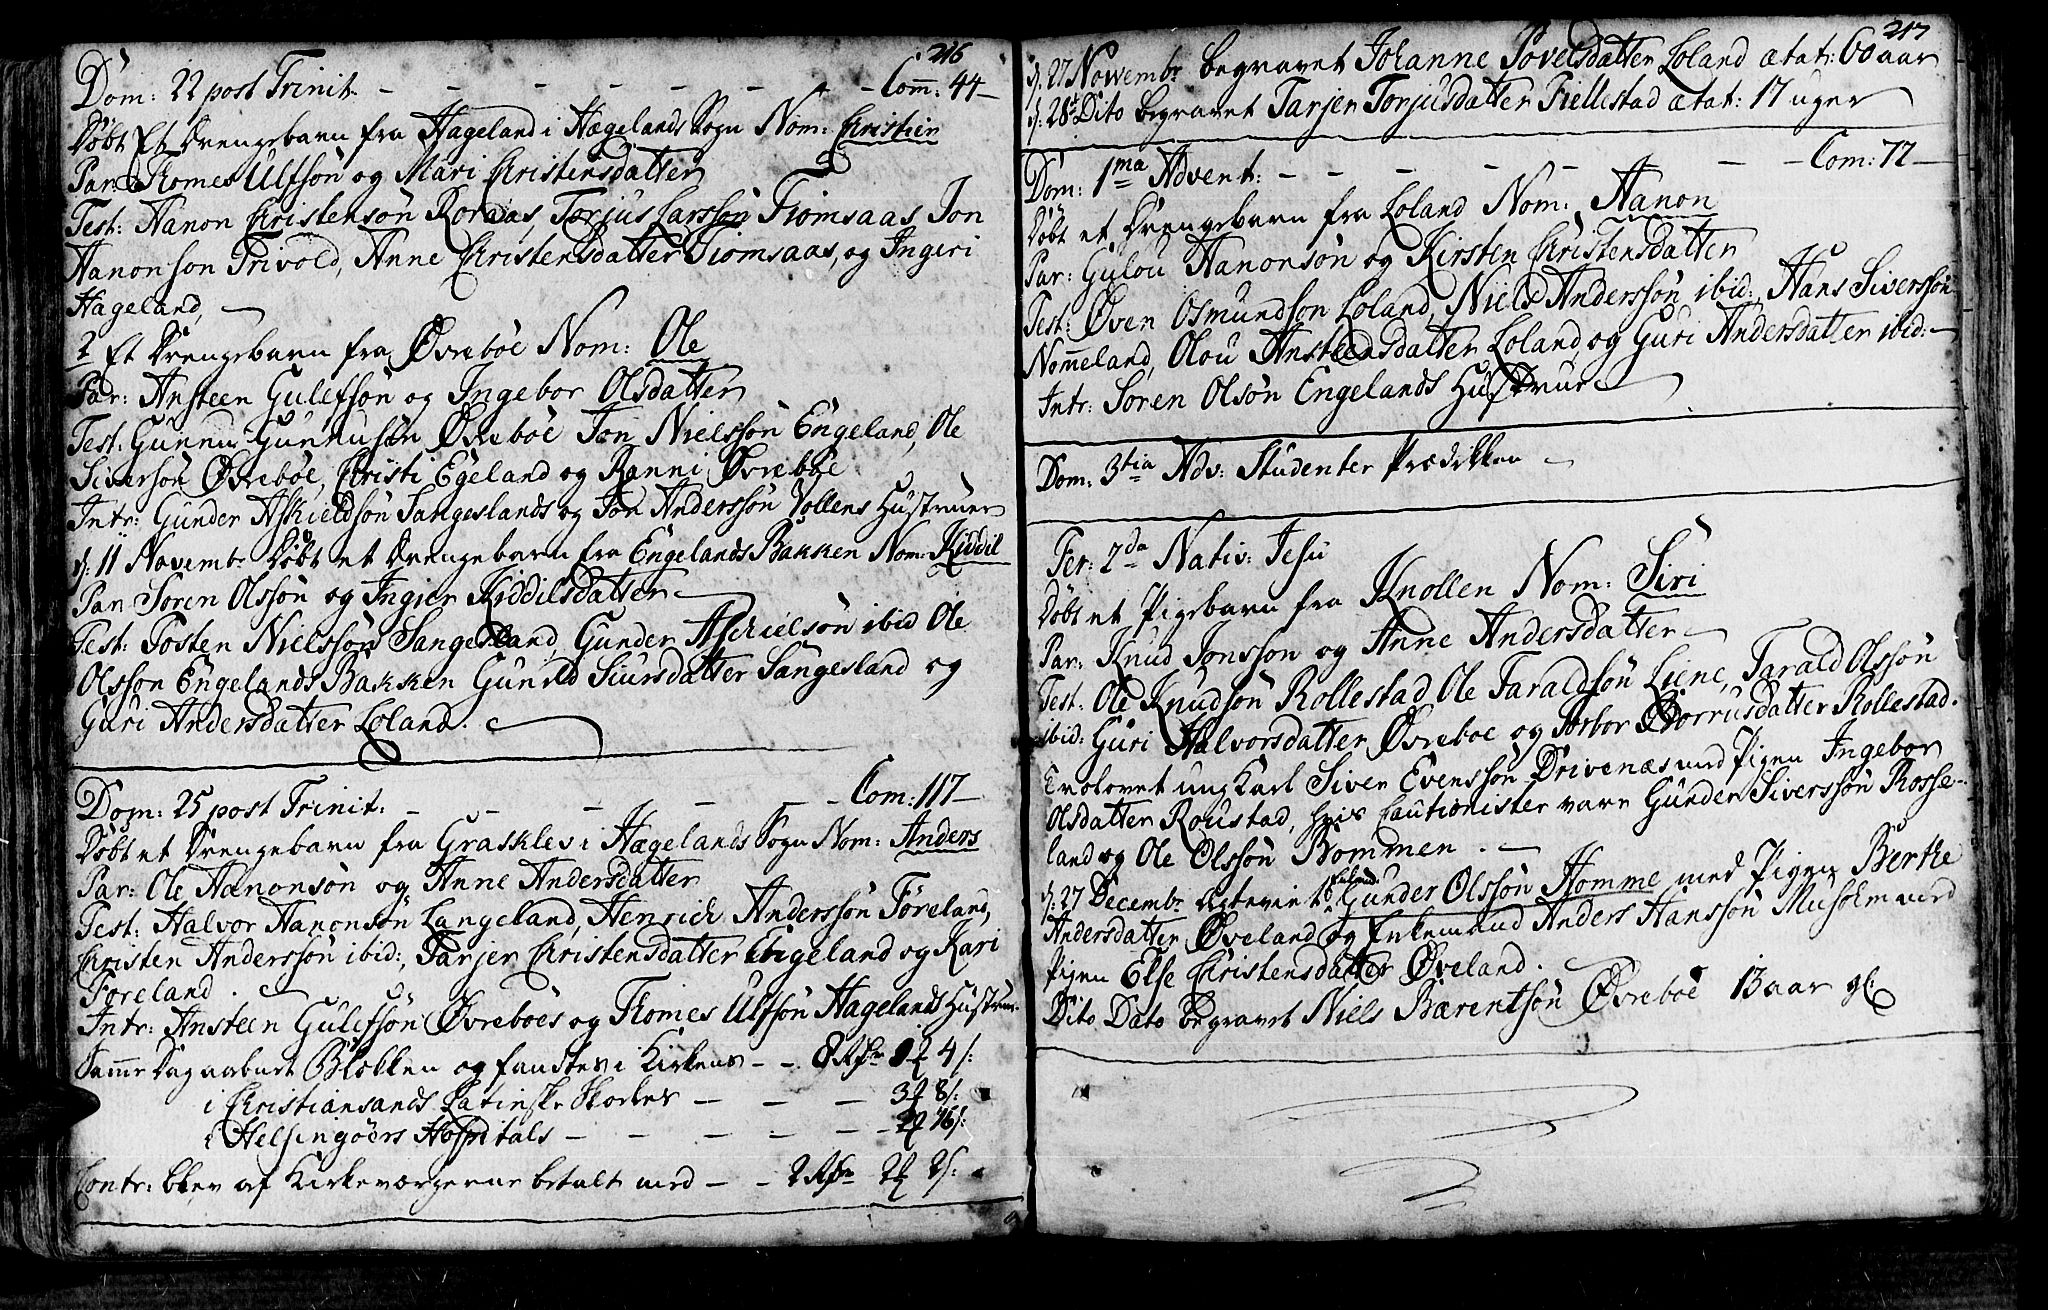 216
Dom: 22 post Trinit. - - - - - - - Com̄: 44 -
Døbt Et Drengebarn fra Hageland i Hægelands Sogn Nom: Christen
Par: Thomes Ulfsøn og Mari Christensdatter
Test: Hanon Christensøn Roraas, Torjus Larssøn Fiomsaas Jon
Hanonson Trivold, Anne Christensdatter Fiomsaas, og Ingeri
Hageland,
2 Et Drengebarn fra Øvrebøe Nom: Ole
Par: Ansteen Gulefsøn og Ingebor Olsdatter
Test: Gunnu Gunnusøn Øvrebøe Jon Nielssøn Engeland, Ole
Siversøn Øvrebøe, Christi Egeland og Ranni Øvrebøe
Intr: Gunder Askieldsøn Sangeslands og Jon Anderssøn Vollens Hustruer
d: 11 Novembr Døbt et Drengebarn fra Engelands Bakken Nom: Kiddil
Par: Søren Olssøn og Ingier Kiddilsdatter
Test: Tosten Nielssøn Sangesland, Gunder Aschielsøn ibid Ole
Olsson Engelands Bakken Gunild Siursdatter Sangesland og
Guri Andersdatter Loland.
Dom: 25 post Trinit: - - - - - - Com: 117 -
Døbt et Drengebarn fra Graskleв i Hægelands Sogn Nom: Anders
Par: Ole Aanonsøn og Anne Andersdatter
Test: Halvor Hanonsøn Langeland, Henrich Anderssøn Føreland,
Christen Anderssøn ibid:, Tarjer Christensdatter Engeland og Kari
Føreland.
Intr: Ansteen Gulefsøn Øvrebøes og Thomes Ulfsøn Hagelands Hustruer
Samme Dag aabnet Blokken og fandtes i Kirkens - - 8 Rdr 4 s:
i Christiansands Latinske Skoeles - - - 3 8 s:
i Helsingøers Hospitals - - - - - 16 s:
Contr: blev af Kirkeværgerne betalt med - - 2 Rdr 2 2 s:
217
d: 27 Novembr begravet Johanne Povelsdatter Loland ætat: 60 aar
d: 28 Dito begravet Tarjer Torjusdatter Fiellestad ætat: 17 uger
Dom: 1ma Advent: - - - - - - - Com: 77 -
Døbt et Drengebarn fra Loland Nom: Aanon
Par: Gulou Hanonsøn og Kirsten Christensdatter
Test: Øven Osmundson Loland, Niels Anderssøn ibid:, Hans Siverssøn
Nom̄eland, Olou Ansteensdatter Loland, og Guri Andersdatter ibid: -
Intr: Søren Olsøn Engelands Hustrue
Dom: 3tia Adv: Studenter Prædikken
Fer: 2da Nativ: Jesu
Døbt et Pigebarn fra Knollen Nom: Siri
Par: Knud Jonsson og Anne Andersdatter
Test: Ole Knudsøn Rollestad Ole Taraldsøn Liene, Tarald Olssøn
ibid: Guri Halvorsdatter Øvreboe og Torbor Torrusdatter Rollestad.
Trolovet ung Karl Siver Evenssøn Drivenæs med Pigen Ingebor
Olsdatter Roustad, hvis Cautionister vare Gunder Siverssøn Rosse-
land og Ole Olssøn Bommen.
d: 27 Decembr Egteviet Gunder Olssøn Homme med Pigen Berthe
Andersdatter Øveland og Enkemand Anders Hanssøn Musholm med
Pigen Else Christensdatter Øveland.
Dito Dato begravet Niels Bærentsøn Øvrebøe 13 aar gl: